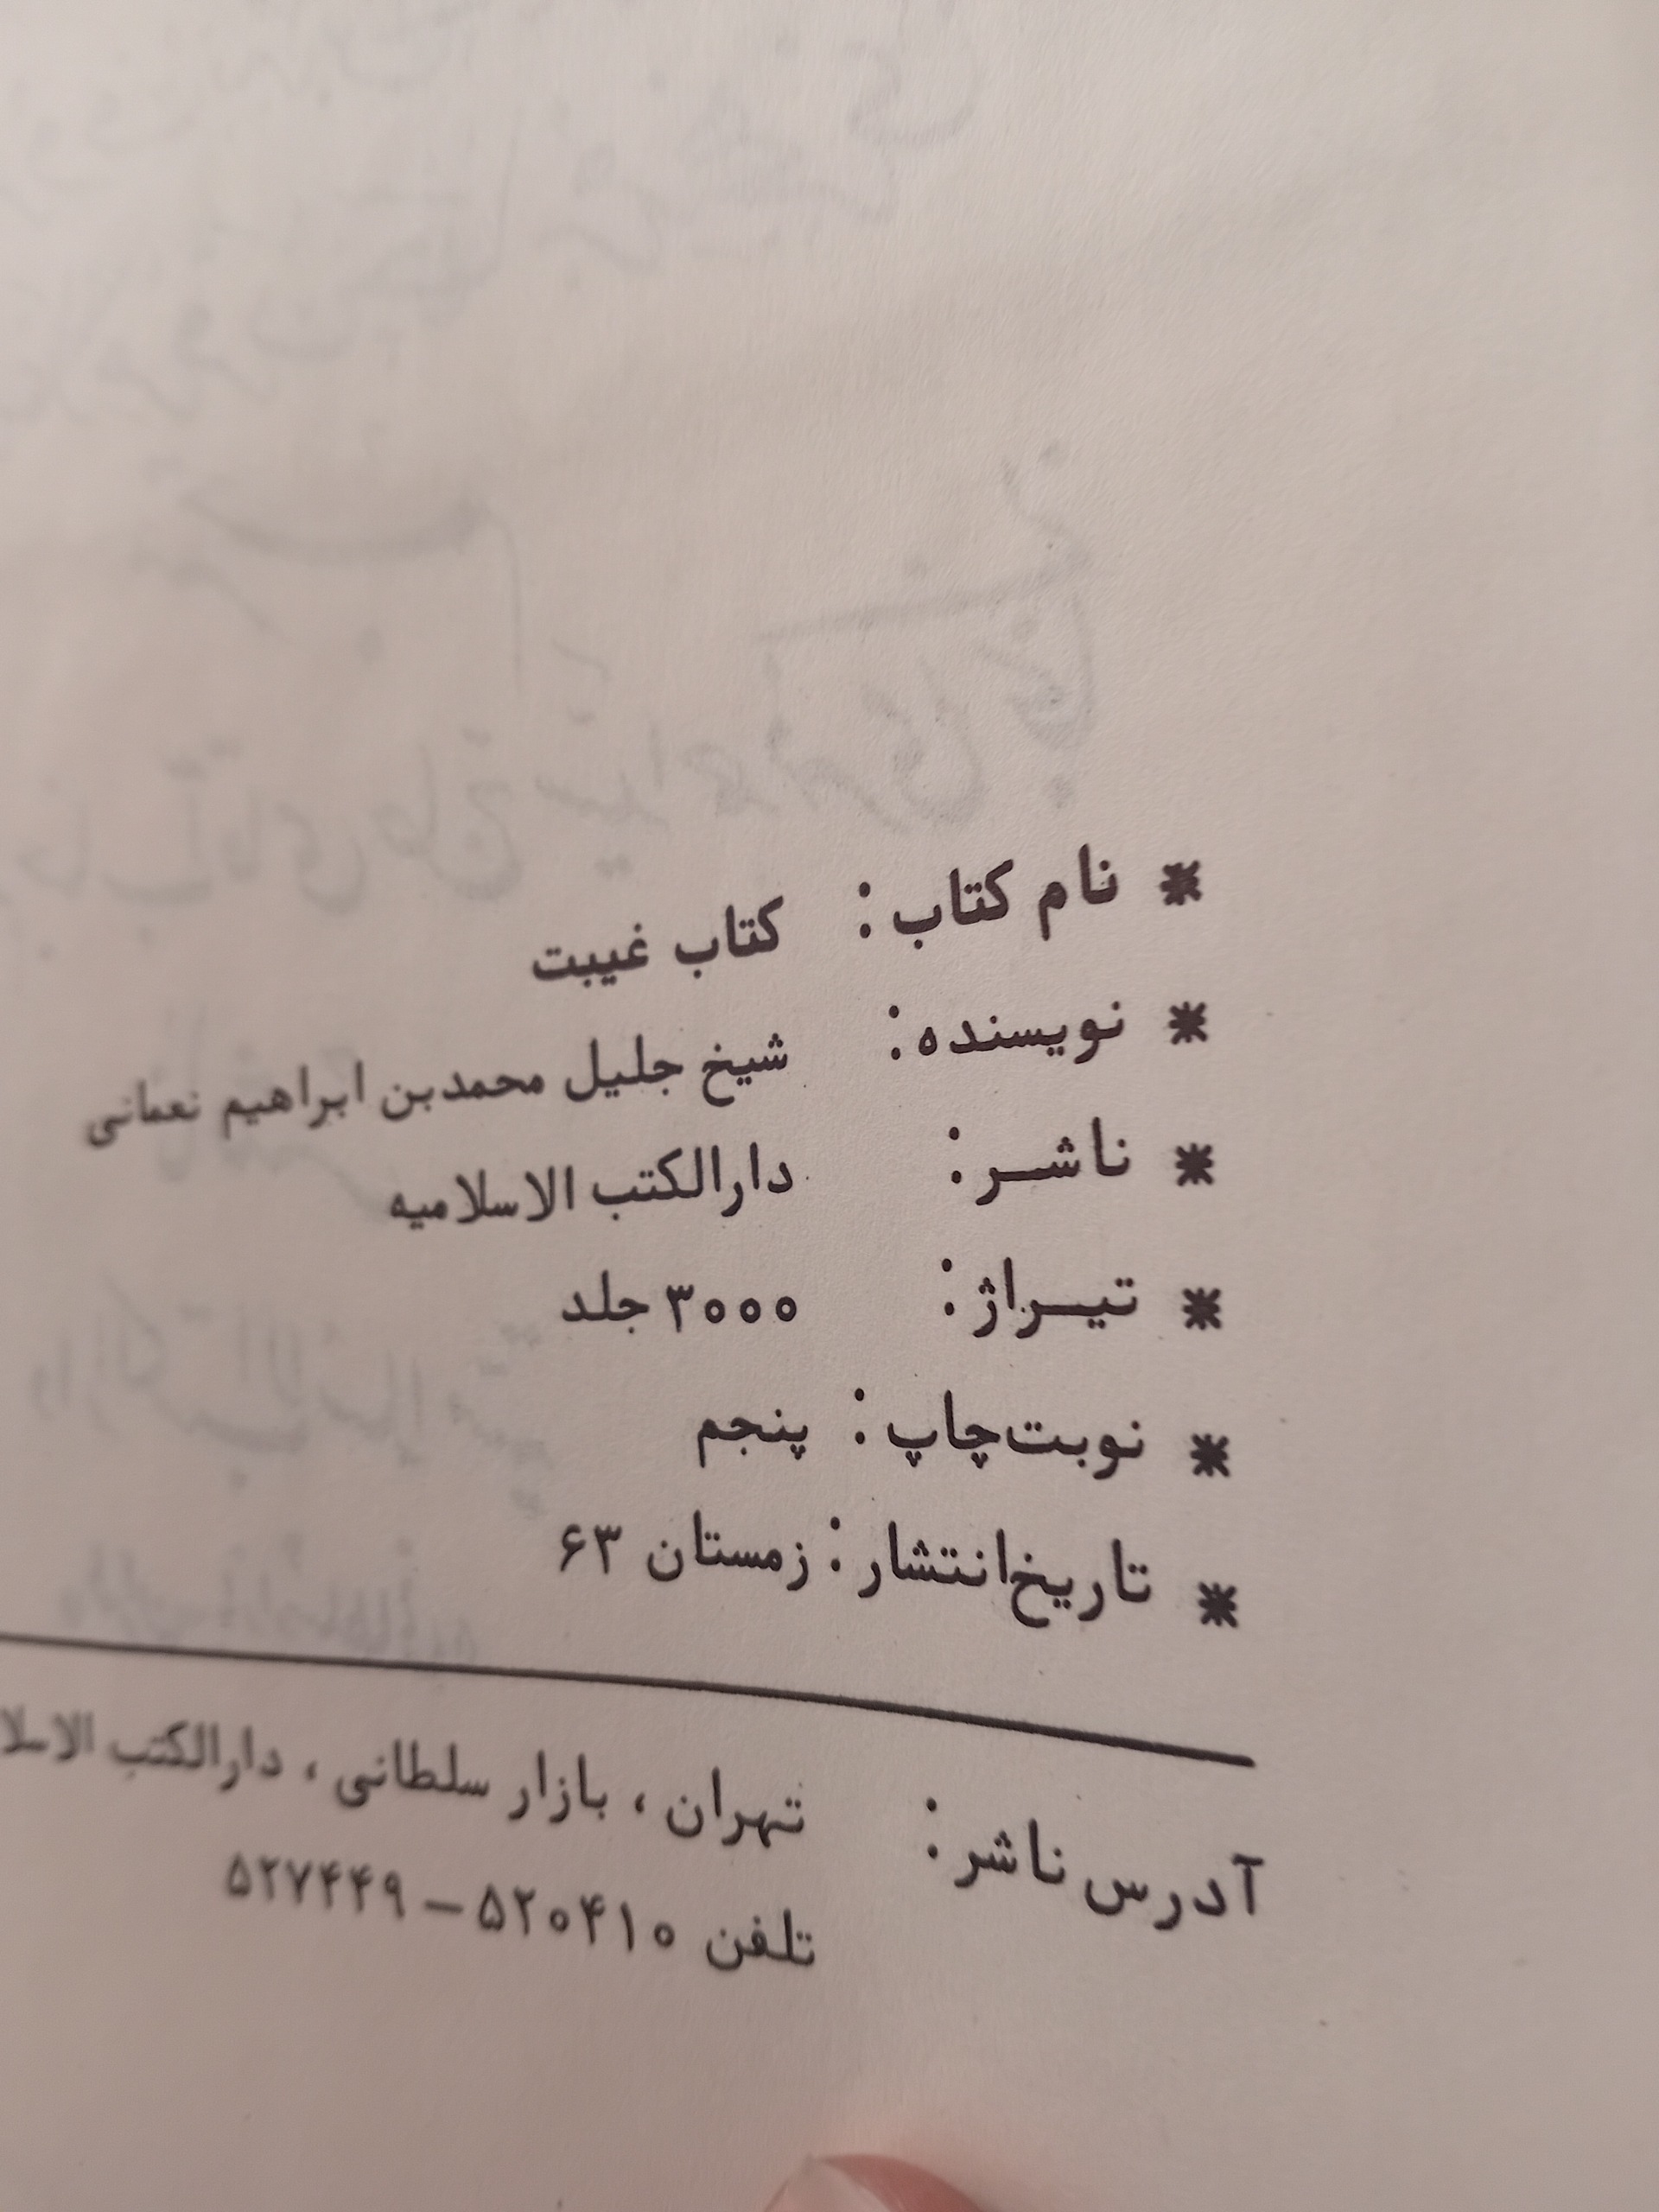 * نام کتاب: کتاب غیبت
* نویسنده: شیخ جلیل محمدبن ابراهیم نعمانی
* ناشـر: دارالکتب الاسلامیه
* تیـراژ: ۳۰۰۰ جلد
* نوبت‌چاپ: پنجم
* تاریخ‌انتشار: زمستان ۶۳
آدرس ناشر: تهران، بازار سلطانی، دارالکتب الاسلا
تلفن ۵۲۰۴۱۰ – ۵۲۷۴۴۹